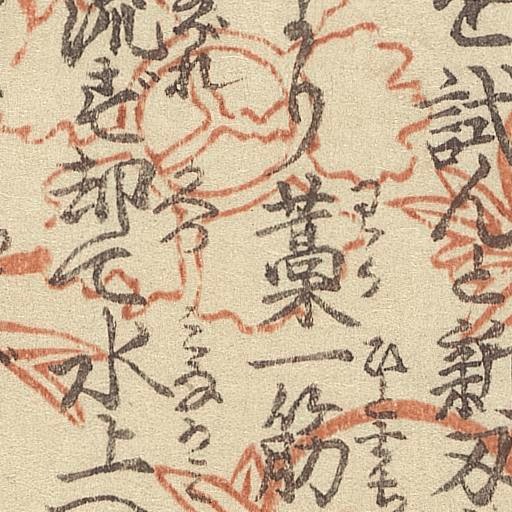 を試んと新刄
より藁一筋
わら ひとすぢ
流ず却て水上へ
ながれ かへつ みなかみ